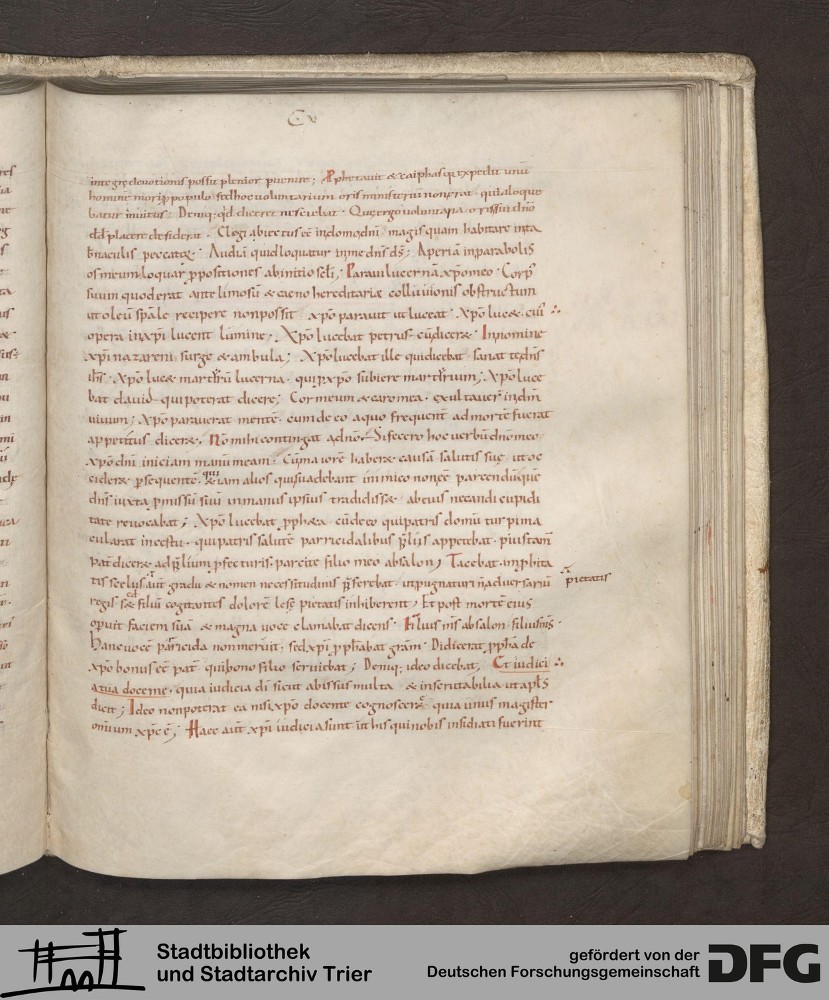 Cv
integrę deuotionis possit plenior puenire; Pphetauit & caiphas qa expedit unū
hominē mori p populo sed hoc uoluntarium oris ministeriū non erat quia loqué
batur inuitus. Deniq; qđ diceret nesciebat. Quę ergo uoluntaria oris sui dn̄o
dđ placere desiderat. Elegi abiectus eē in domo dn̄i magis quam habitare in ta
b̄naculis peccatoꝝ. Audiā quid loquatur in me dn̄s ds̄; Aperiā in parabolis
os meum loquar ppositiones ab initio scl̄i; Paraui lucernā xp̄o meo. Corp̄
suum quod erat ante limosū & caeno hereditariae colluuionis obstructum
ut oleū sp̄ale recipere non possit xp̄o parauit ut luceat. Xp̄o luc& cui᷒
opera in xp̄i lucent lumine; Xp̄o lucebat petrus cū dicer&. In nomine
xp̄i nazareni surge & ambula; Xp̄o lucebat ille qui dicebat. sanat te dn̄s
ih̄s. Xp̄o luc& martirū lucerna. qui p xp̄o subiere martirium; Xp̄o luce
bat dauid qui poterat dicere; Cor meum & caro mea. exultauer̄ in dm̄
uiuum; Xp̄o parauerat mentē. cum de eo a quo frequent̄ ad mortē fuerat
appetitus dicer&. Non mihi contingat a dn̄o. Si fecero hoc uerbū dn̄o meo
xp̄o dn̄i iniciam manū meam. Cū maiorē haber& causā salutis suę ut oc
cider& psequentē. &iam alios qui suadebant inimico non eē parcendū. que
dn̄s iuxta pmissū suū in manus ipsius tradidiss& ab eius necandi cupidi
tate reuocabat; Xp̄o lucebat ppheta cū de eo qui patris domū turpi ma
cularat incestu. qui patris salutē parricidalibus p̄liis appetebat. piusta᷒
pat̄ dicer& ad p̄lium pfecturis. parcite filio meo absalon; Tacebat impieta
tis scelus aut̄ gradū & nomen necessitudinis p̄ferebat. ut pugnaturi n̄ aduersariū
∴ pietatis
regis sed filiū cogitantes dolorē lesę pietatis inhiberent; Et post mortē eius
opuit faciem suā & magna uoce clamabat dicens. Filius ms̄ absalon filius ms̄.
Hanc uocē parricida non meruit. sed xp̄i pph̄abat gr̄am. Didicerat pph̄a de
xp̄o bonus eē pat̄ qui bono filio seruiebat; Deniq; ideo dicebat; Et iudici
a tua doce me. quia iudicia dī sicut abissus multa & inscrutabilia ut apl̄s
dicit; Ideo non poterat ea nisi xp̄o docente cognoscere quia unus magister
omnium xp̄c ē; Haec aut̄ xp̄i iudicia sunt ut his qui nobis insidiati fuerint
Stadtbibliothek
und Stadtarchiv Trier
gefördert von der
Deutschen Forschungsgemeinschaft
DFG